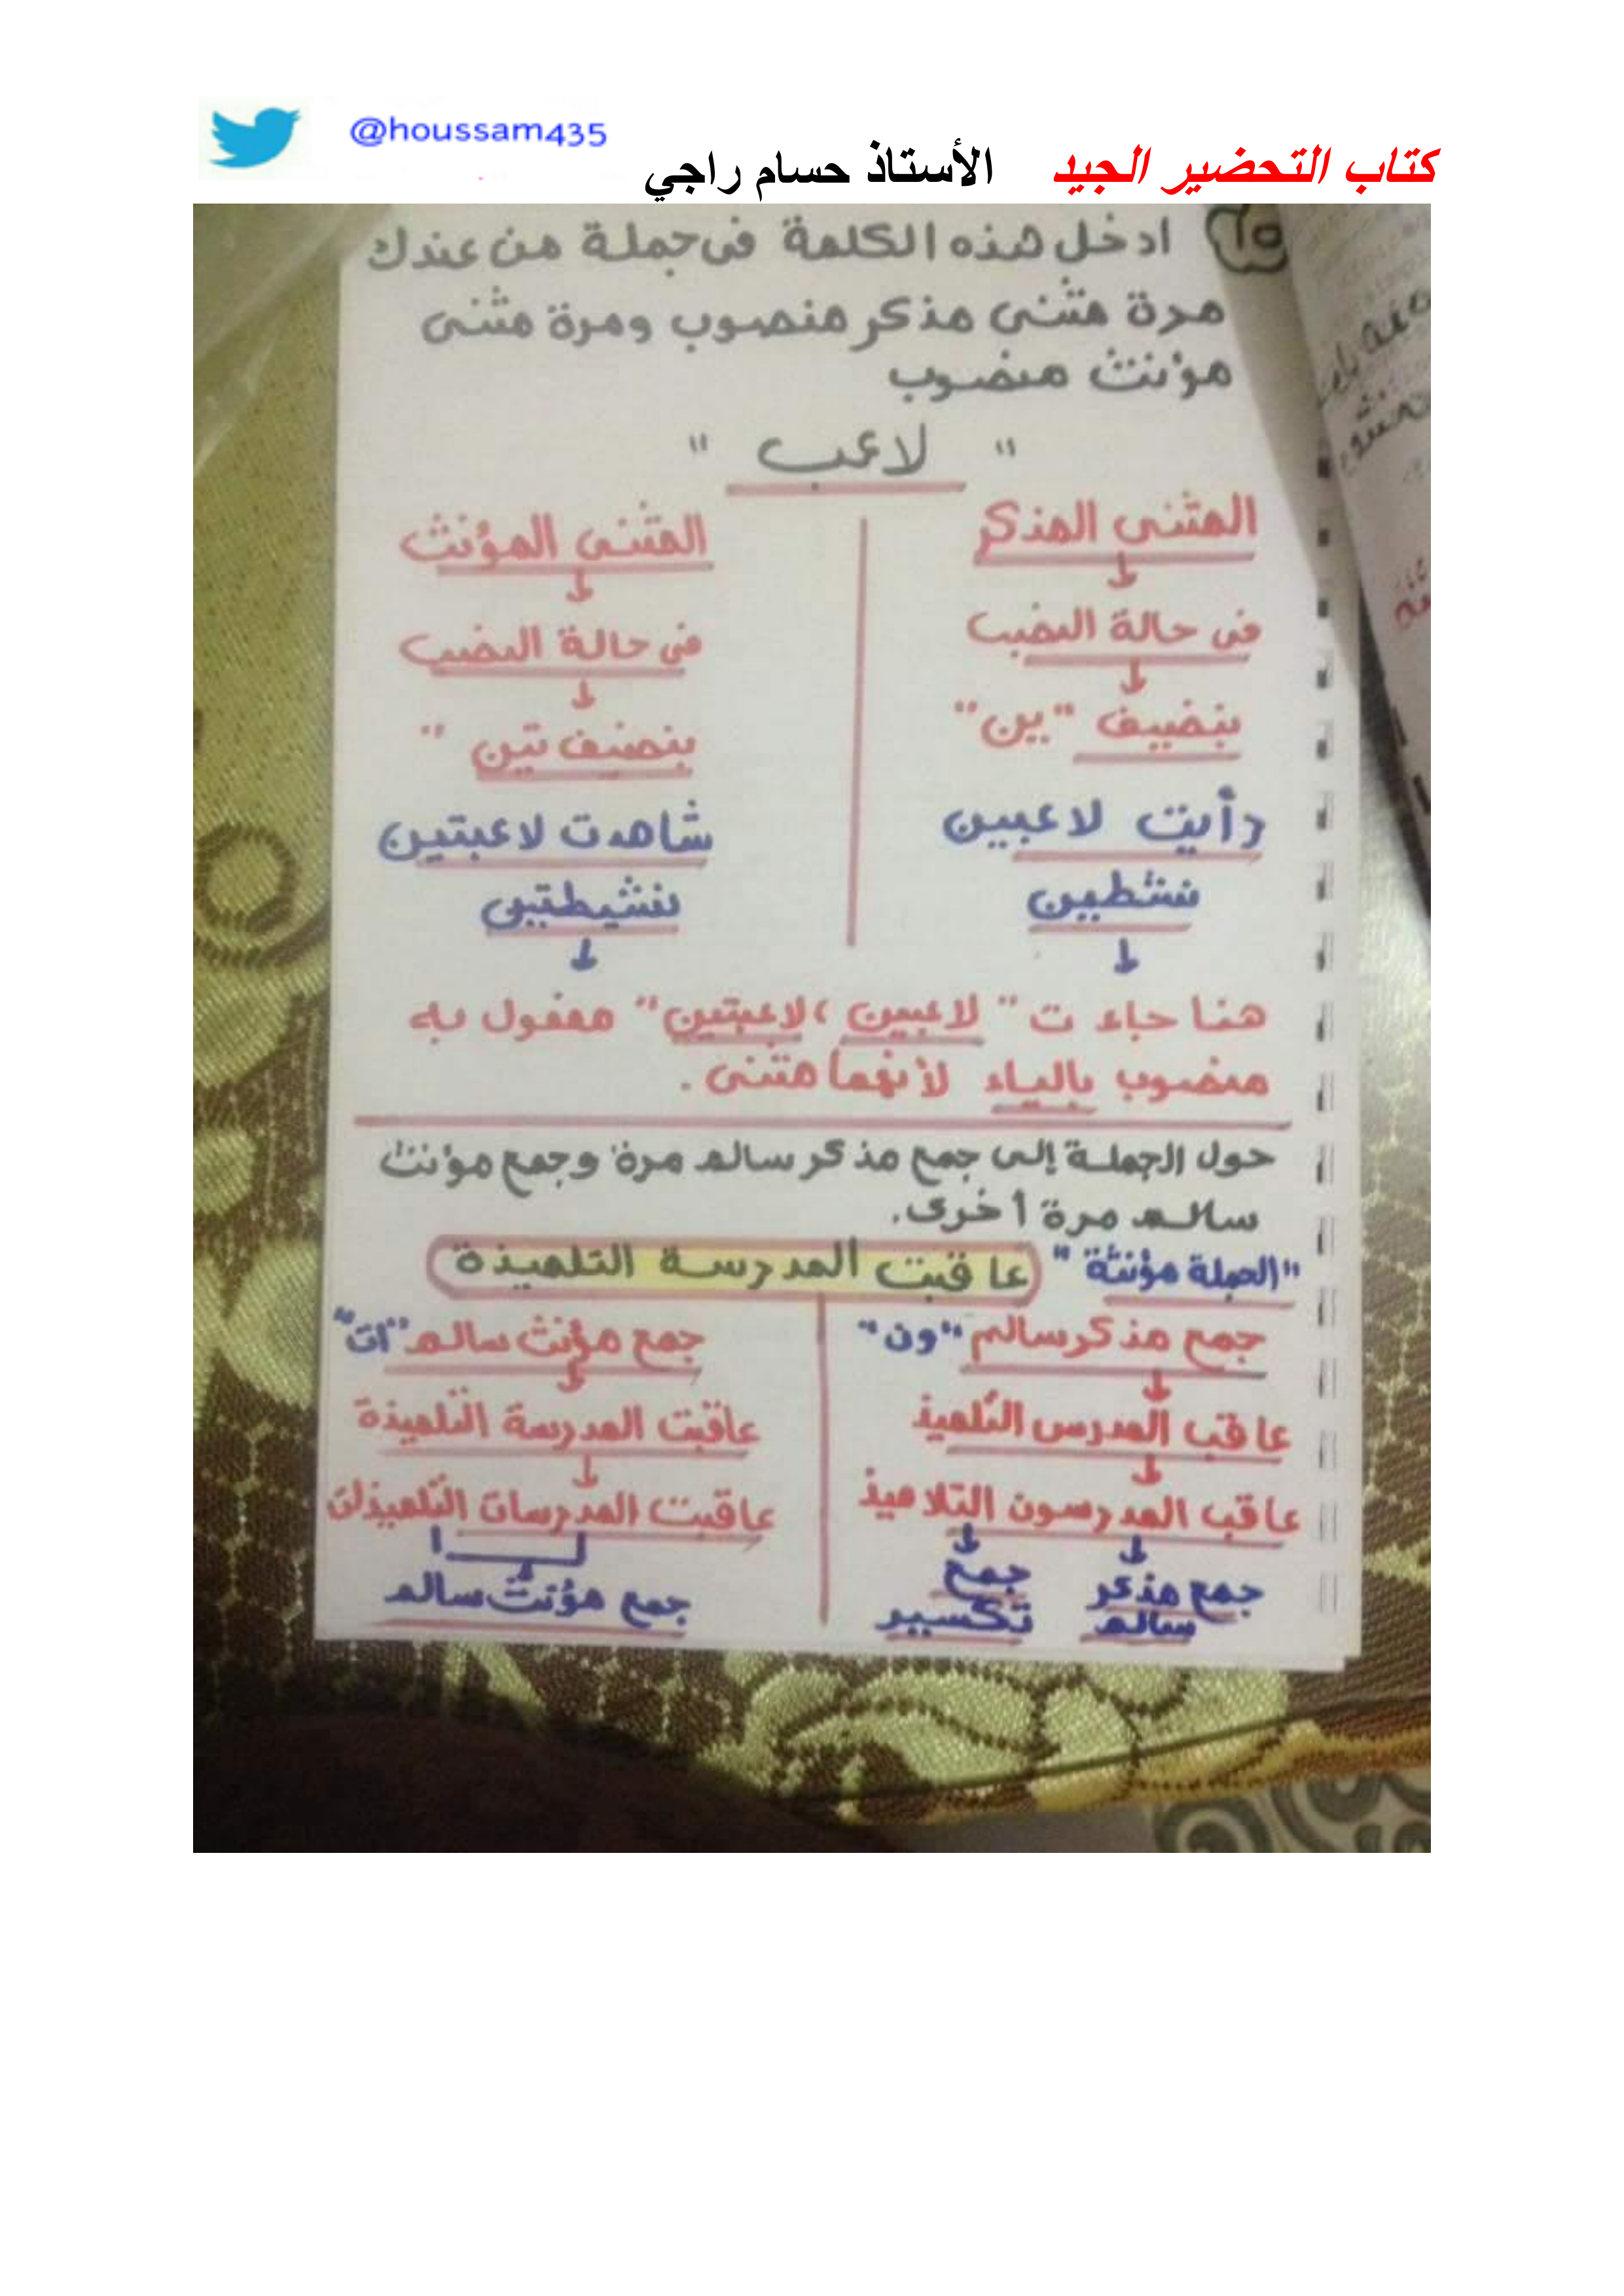 @houssam435
كتاب التحضير الجيد الأستاذ حسام راجي
١٥ ادخل هذه الكلمة فى جملة من عندك
مرة مثنى مذكر منصوب ومرة مثنى
مؤنث منصوب
" لاعب "
المثنى المذكر
فى حالة النصب
بنضيف "ين"
رأيت لاعبين
نشطين
المثنى المؤنث
فى حالة النصب
بنضيف تين "
شاهدت لاعبتين
نشيطتين
هنا جاءت " لاعبين ، لاعبتين " مفعول به
منصوب بالياء لأنهما مثنى .
حول الجملة إلى جمع مذكر سالم مرة وجمع مؤنث
سالم مرة أخرى.
"الجملة مؤنثة" (عاقبت المدرسة التلميذة)
جمع مذكر سالم "ون"
عاقب المدرس التلميذ
عاقب المدرسون التلاميذ
جمع مذكر سالم
جمع تكسير
جمع مؤنث سالم "ات"
عاقبت المدرسة التلميذة
عاقبت المدرسات التلميذات
جمع مؤنث سالم